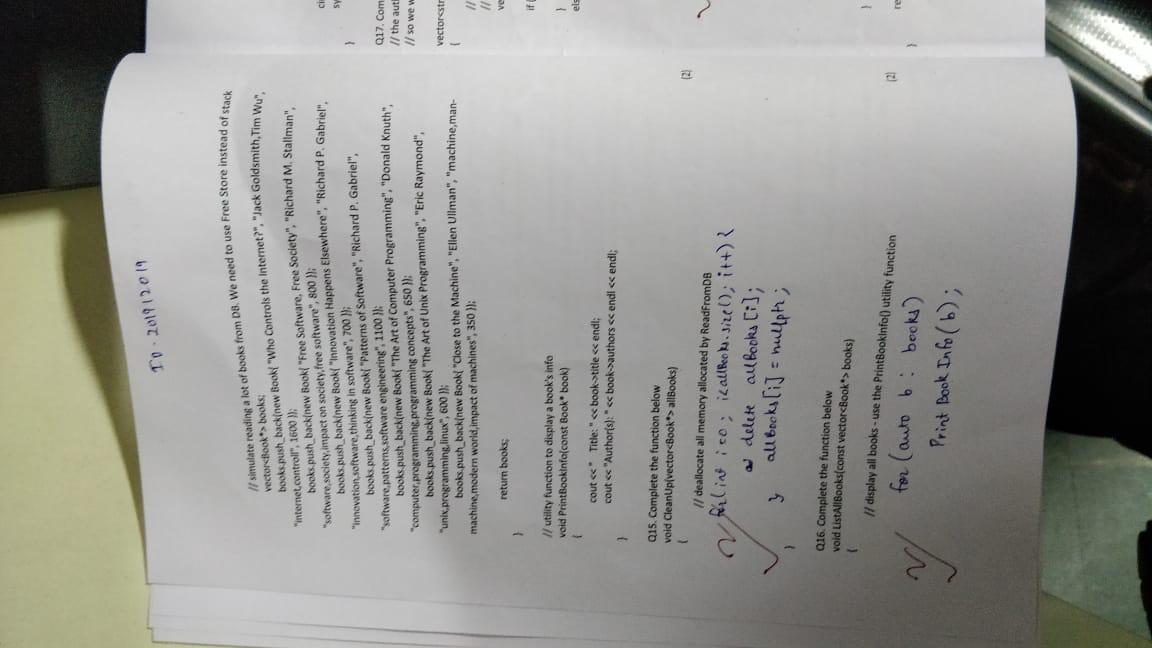 ID - 201912019
// simulate reading a lot of books from DB. We need to use Free Store instead of stack
vector<Book*> books;
books.push_back(new Book{ "Who Controls the Internet?", "Jack Goldsmith,Tim Wu",
"internet,controll", 1600 });
books.push_back(new Book{ "Free Software, Free Society", "Richard M. Stallman",
"software,society,impact on society,free software", 800 });
books.push_back(new Book{ "Innovation Happens Elsewhere", "Richard P. Gabriel",
"innovation,software,thinking in software", 700 });
books.push_back(new Book{ "Patterns of Software", "Richard P. Gabriel",
"software,patterns,software engineering", 1100 });
books.push_back(new Book{ "The Art of Computer Programming", "Donald Knuth",
"computer,programming,programming concepts", 650 });
books.push_back(new Book{ "The Art of Unix Programming", "Eric Raymond",
"unix,programming,linux", 600 });
books.push_back(new Book{ "Close to the Machine", "Ellen Ullman", "machine,man-
machine,modern world,impact of machines", 350 });
return books;
}
// utility function to display a book's info
void PrintBookInfo(const Book* book)
{
cout << "   Title: " << book->title << endl;
cout << "Author(s): " << book->authors << endl << endl;
}
Q15. Complete the function below
void CleanUp(vector<Book*> allBooks) (2)
{
// deallocate all memory allocated by ReadFromDB
for(int i=0; i<allBooks.size(); i++) {
delete allBooks[i];
allBooks[i] = nullptr;
}
}
2
Q16. Complete the function below
void ListAllBooks(const vector<Book*> books)
{
// display all books - use the PrintBookInfo() utility function (2)
for (auto b : books)
Print Book Info(b);
2
}
Q17. Com
// the aut
// so we w
vector<str
{
//
//
ve
if (
}
els
}
re
}